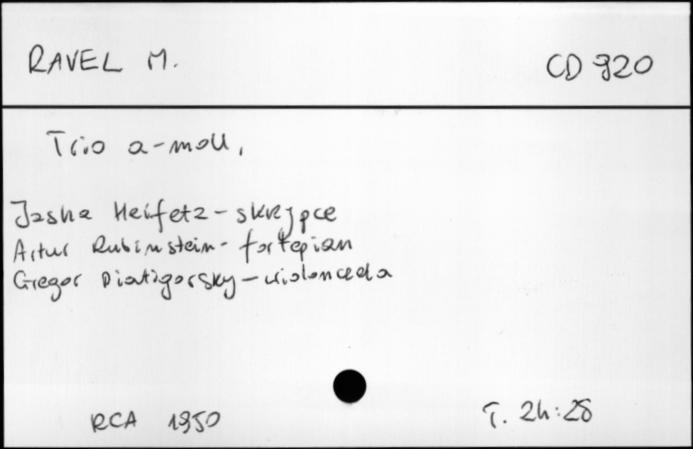 RAVEL M.
CD 920
Trio a-moll,
Jasha Heifetz - skrzypce
Artur Rubinstein - fortepian
Gregor Piatigorsky - violoncela
RCA 1950
T. 24:28